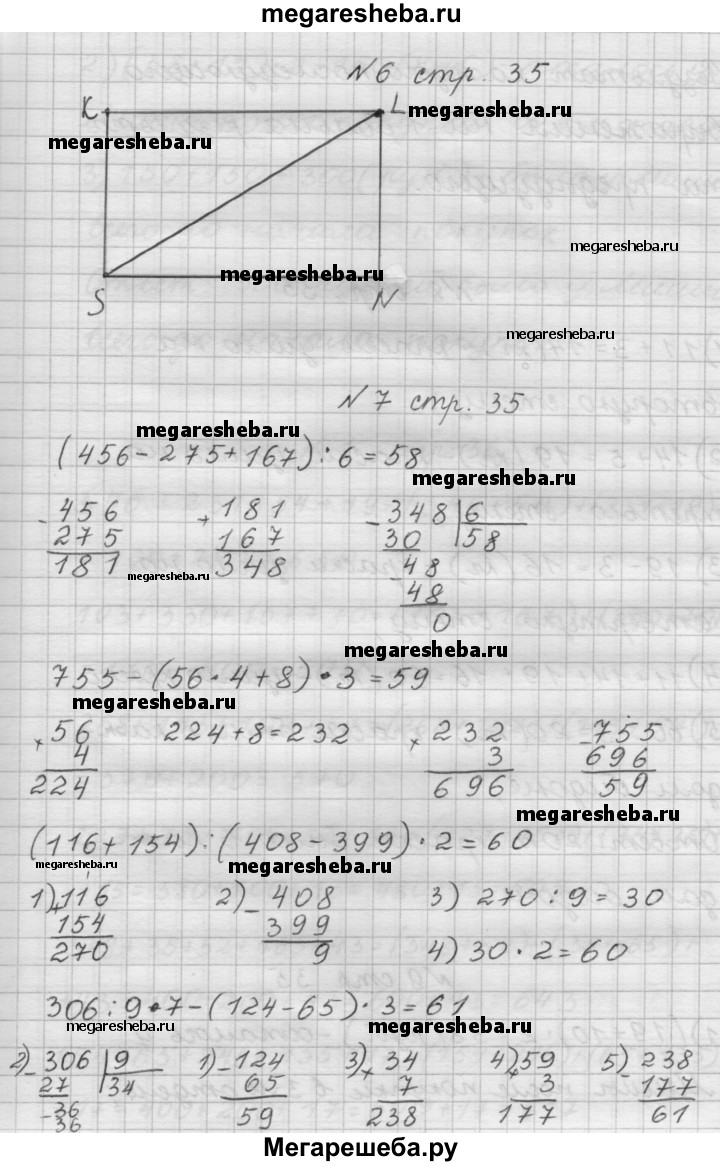 megaresheba.ru
N6 стр. 35
K L megaresheba.ru
megaresheba.ru
megaresheba.ru
megaresheba.ru
S N
megaresheba.ru
N7 стр. 35
megaresheba.ru
(456-275+167):6=58
megaresheba.ru
-456 +181 -348|6
275 167 30 58
181 348 -48
megaresheba.ru
48
0
megaresheba.ru
755-(56·4+8)·3=59
megaresheba.ru
×56 224+8=232 ×232 -755
4 3 696
224 696 59
megaresheba.ru
(116+154):(408-399)·2=60
megaresheba.ru megaresheba.ru
1)+116 2)-408 3) 270:9=30
154 399
270 9 4) 30·2=60
306:9·7-(124-65)·3=61
megaresheba.ru megaresheba.ru
2)-306|9 1)-124 3)×34 4)×59 5)238
27 34 65 7 3 177
-36 59 238 177 61
36
Мегарешеба.ру